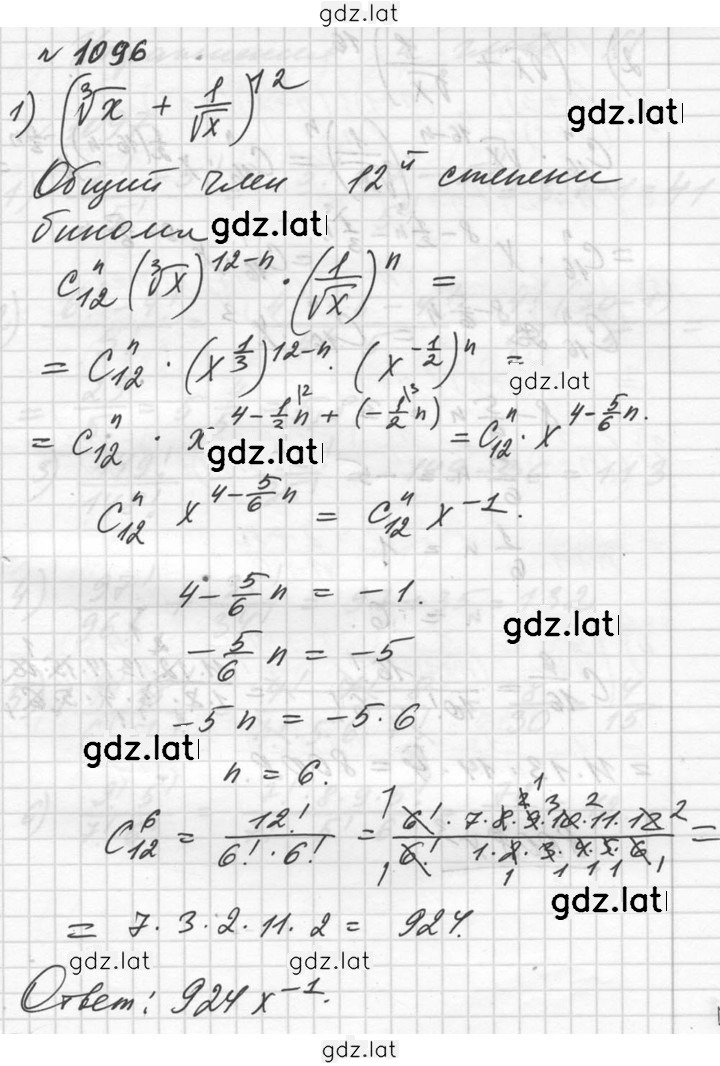 gdz.lat
№ 1096
1) (∛x + 1/√x)^12
gdz.lat
Общий член 12й степени
бинома gdz.lat
C_12^n (∛x)^(12-n) · (1/√x)^n =
= C_12^n · (x^(1/3))^(12-n) · (x^(-1/2))^n =
gdz.lat
= C_12^n · x^(4-1/3n+(-1/2n)) = C_12^n · x^(4-5/6n).
gdz.lat
C_12^n x^(4-5/6n) = C_12^n x^(-1).
4 - 5/6 n = -1.
gdz.lat
-5/6 n = -5
-5n = -5·6
gdz.lat
n = 6.
C_12^6 = 12!/(6!·6!) = (6!·7·8·9·10·11·12)/(6!·1·2·3·4·5·6) =
gdz.lat
= 7·3·2·11·2 = 924.
gdz.lat gdz.lat
Ответ: 924 x^(-1).
gdz.lat